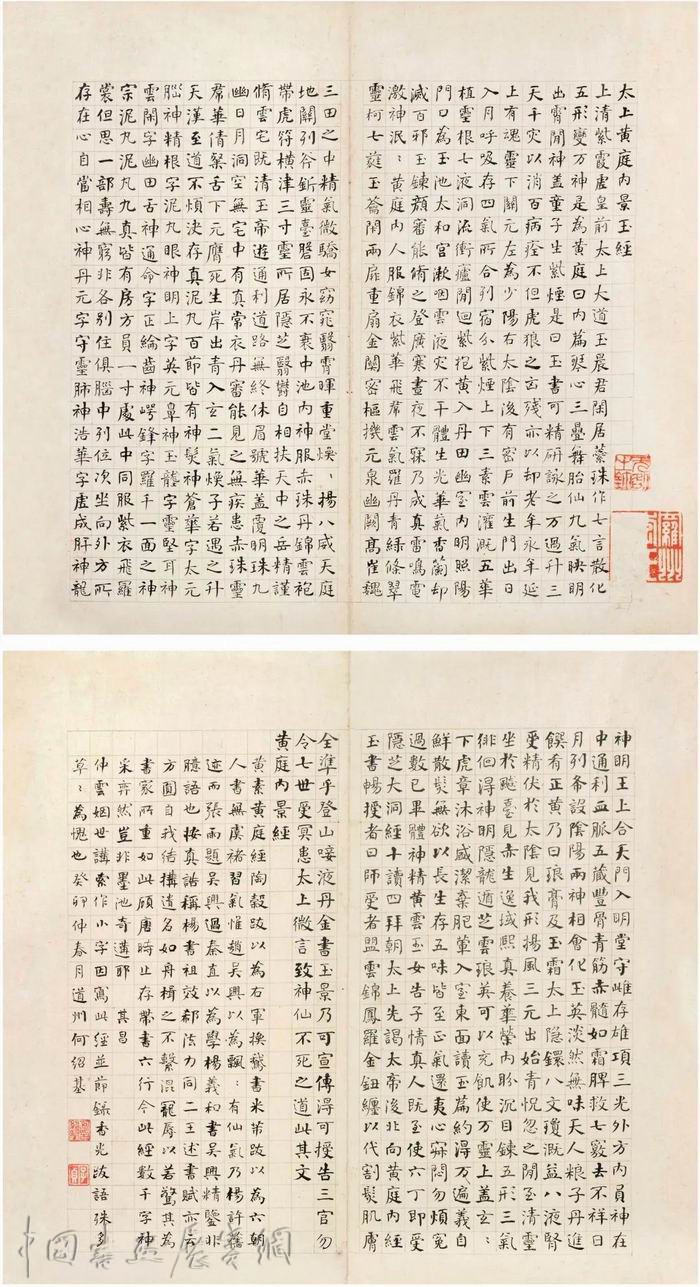 太上黃庭內景玉經
上清紫霞虛皇前太上大道玉晨君閑居蕊珠作七言散化
五形變万神是為黃庭曰內篇琴心三疊舞胎仙九氣映明
出霄閒神蓋童子生紫煙是曰玉書可精研詠之万過升三
天千灾以消百病痊不但虎狼之㐫殘亦以却老年永年延
上有魂靈下關元左為少陽右太陰後有密戶前生門出日
入月呼吸存四氣所合列宿分紫煙上下三素雲灌溉五華
植靈根七液洞流衝廬閒迴紫抱黃入丹田幽室內明照陽
門口為玉池太和宮漱咽雲液灾不干體生光華氣香蘭却
滅百邪玉鍊顏審能脩之登廣寒晝夜不寐乃成真雷鳴電
激神泯:黃庭內人服錦衣紫華飛羣雲氣羅丹青綠條翠
靈柯七蕤玉籥閉兩扉重扇金關密樞機元泉幽闕高崔巍
三田之中精氣微驕女窈窕翳霄暉重堂煥:揚八威天庭
地關列谷斫靈臺磐固永不衰中池內神服赤珠丹錦雲袍
帶虎符橫津三寸靈所居隱芝翳欝自相扶天中之岳精謹
脩雲宅既清玉帝遊通利道路無終休眉號華蓋覆明珠九
幽日月洞空無宅中有真常衣丹審能見之無疾患赤珠靈
帬華倩粲舌下元膺死生岸出青入玄二氣煥子若遇之升
天漢至道不煩決存真泥丸百節皆有神髮神蒼華字太元
腦神精根字泥丸眼神明上字英元鼻神玉壟字靈堅耳神
雲閑字幽田舌神通命字正綸齒神崿鋒字羅千一面之神
宗泥丸泥丸九真皆有房方員一寸處此中同服紫衣飛羅
裳但思一部壽無窮非各別住俱腦中列位次坐向外方所
存在心自當相心神丹元字守靈肺神浩華字虛成肝神龍
神明王上合天門入明堂守雌存雄項三光外方內員神在
中通利血脈五藏豐骨青筋赤髓如霜脾救七竅去不祥日
月列布設陰陽兩神相會化玉英淡然無味天人粮子丹進
饌肴正黃乃曰琅膏及玉霜太上隱鐶八文瓊溉益八液腎
受精伏於太陰見我形揚風三元出始青怳忽之閒至清靈
坐於飈臺見赤生逸域熙真養華榮內盼沉目鍊五形三氣
徘徊得神明隱龍遁芝雲琅英可以充飢使万靈上蓋玄:
下虎章沐浴盛潔棄肥葷入室東面讀玉篇約得万遍義自
鮮散髮無欲以長生存五味皆至正氣還夷心寂悶勿煩冤
過數已畢體神精黃雲玉女告子情真人既至使六丁即受
隱芝大洞經十讀四拜朝太上先謁太帝後北向黃庭內經
玉書暢授者曰師受者盟雲錦鳳羅金鈕纏以代割髮肌膚
全準乎登山喢液丹金書玉景乃可宣傳得可授告三官勿
令七世受冥患太上微言致神仙不死之道此其文
黃庭內景經
黃素黃庭經陶穀跋以為右軍換鵞書米芾跋以為六朝
人書無虞褚習氣惟趙吳興以為飄:有仙氣乃楊許舊
迹而張雨題吳興過秦直以為學楊義和書吳興精鑒非
臆語也按真誥稱楊書祖效郗法力同二王述書賦亦云
方圓自我結構遺名如舟楫之不繫混寵辱以若驚其為
書家所重如此顧唐時止存帶書六行今此經數千字神
采弈然豈非墨池奇遘耶 其昌
仲雲姻世講索作小字因寫此經並節錄香光跋語殊多
草:為愧也癸卯仲春月道州何紹基
中國書畫展賣網